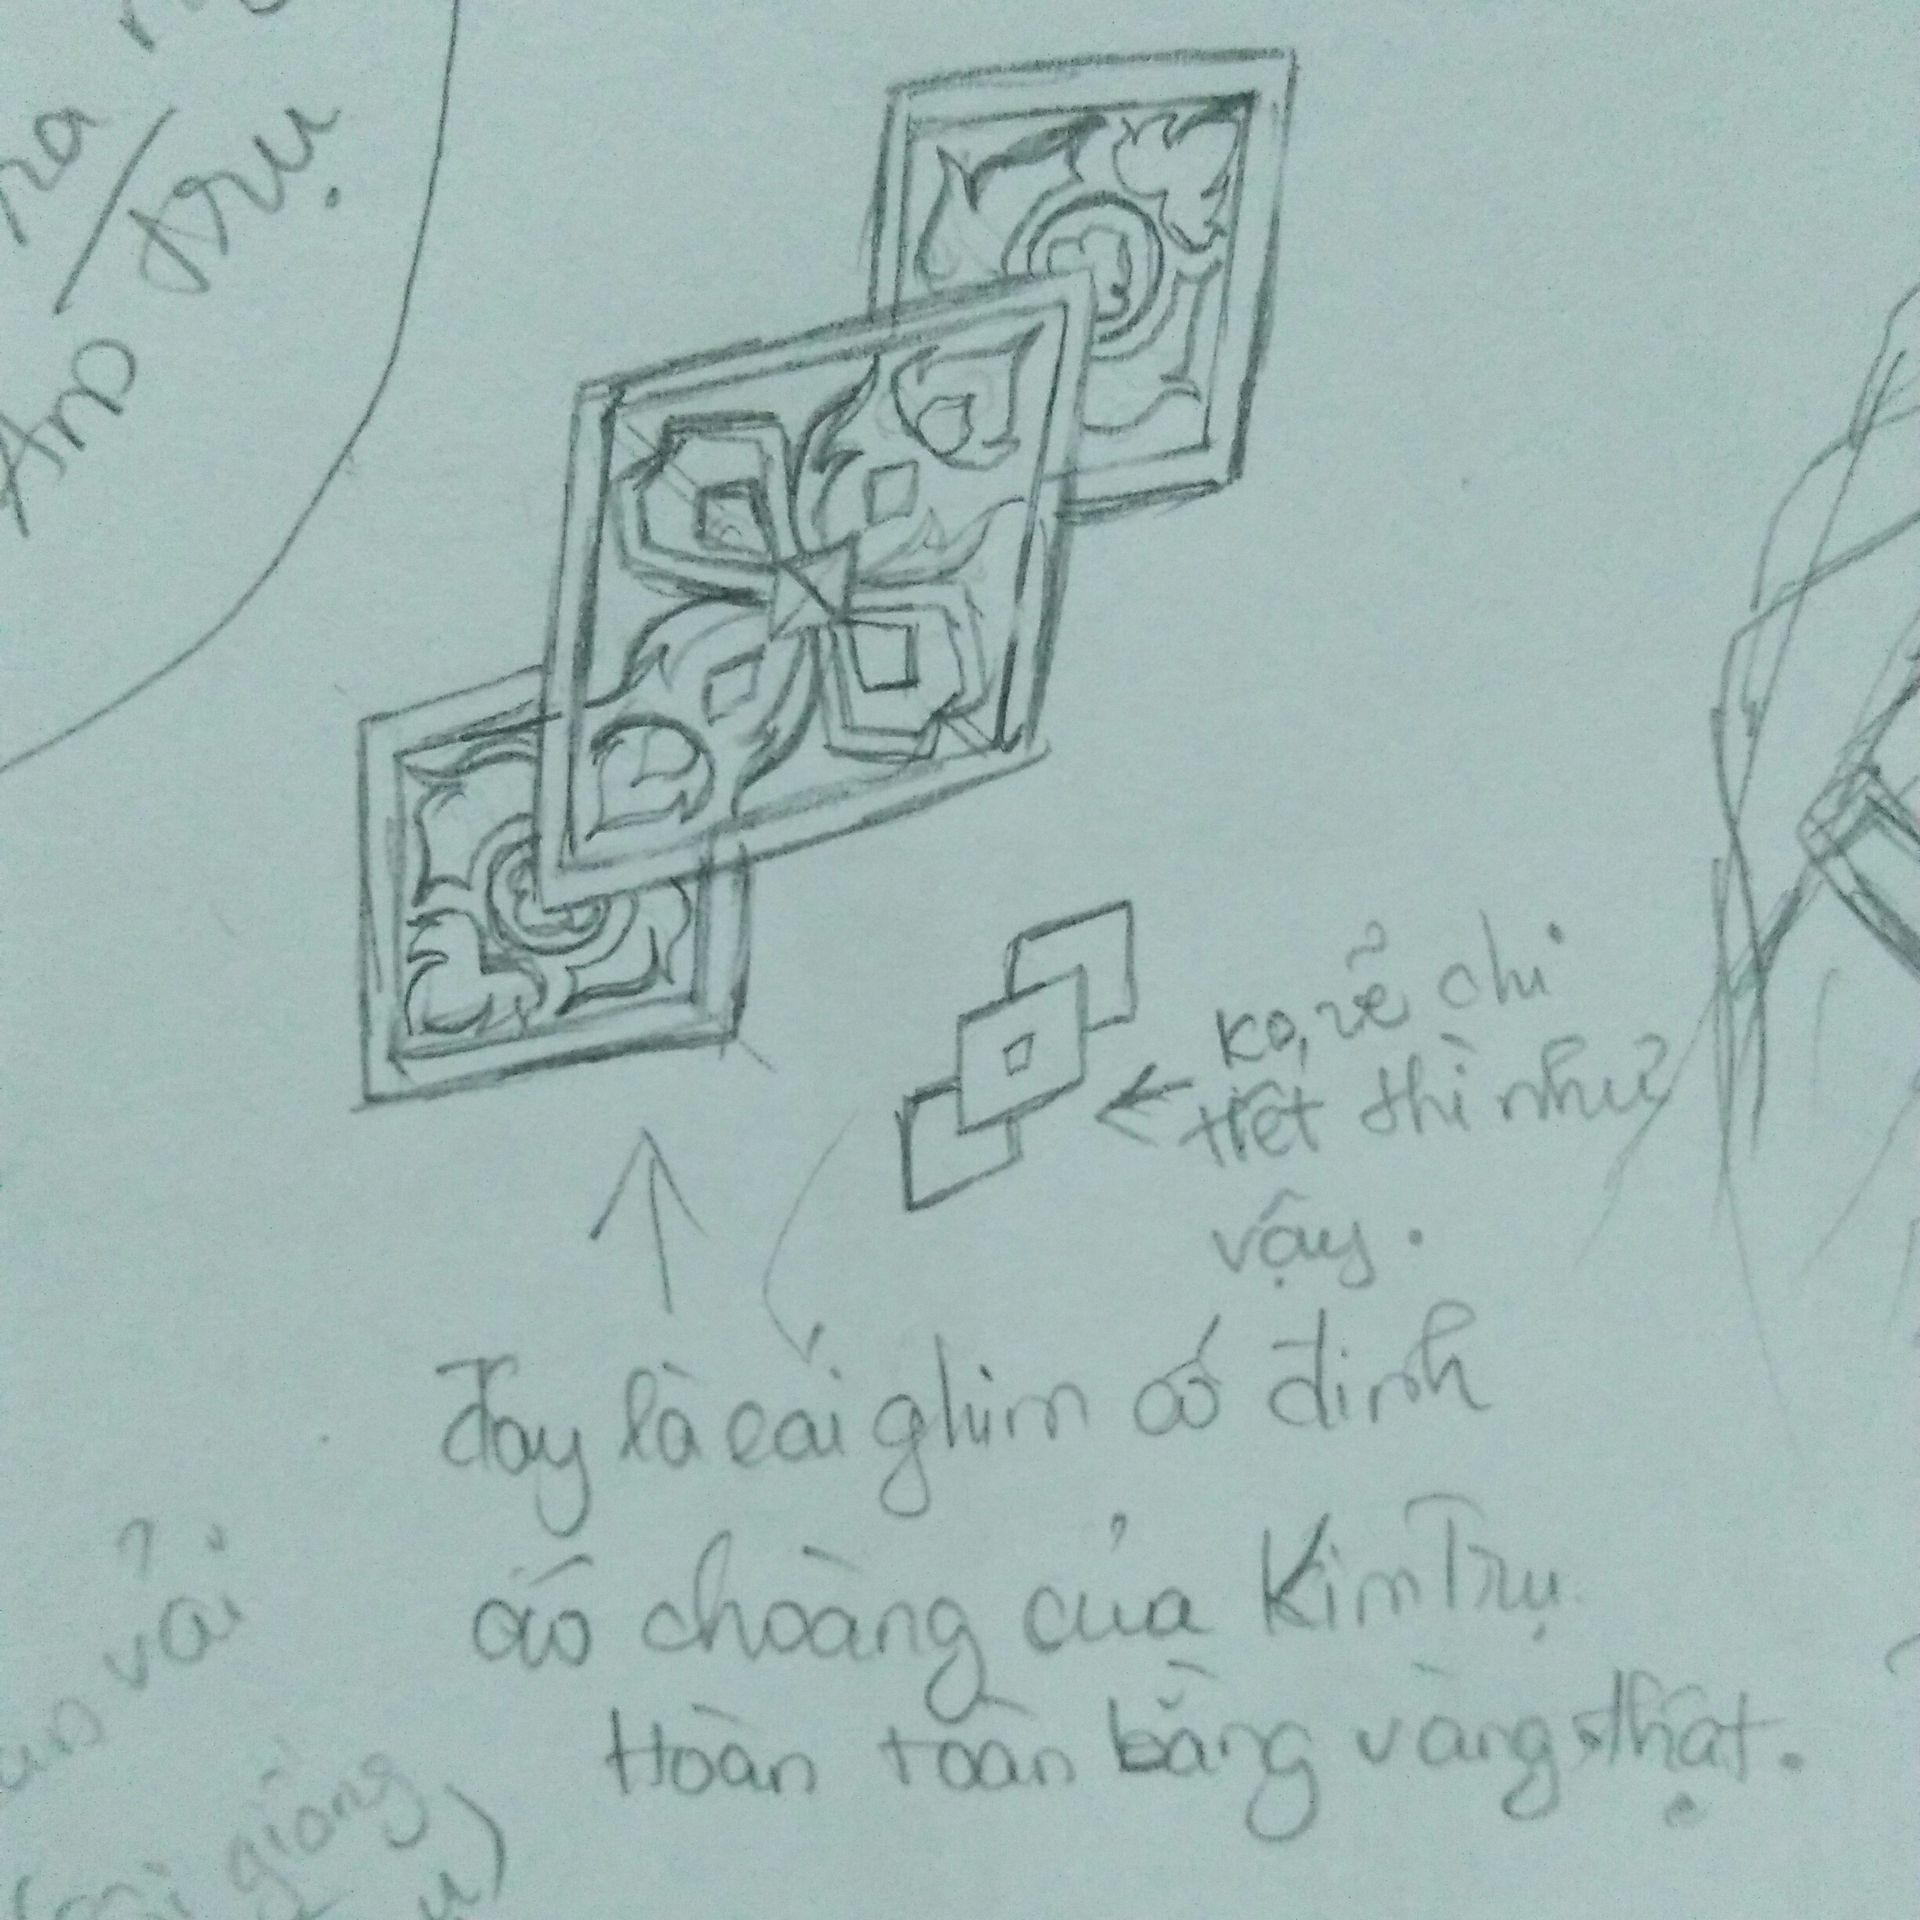 Âm
trụ
ko, vẽ chi
tiết thì như
vậy.
Đây là cái ghim cố định
áo choàng của Kim Trụ
Hoàn toàn bằng vàng thật.
vải
giống